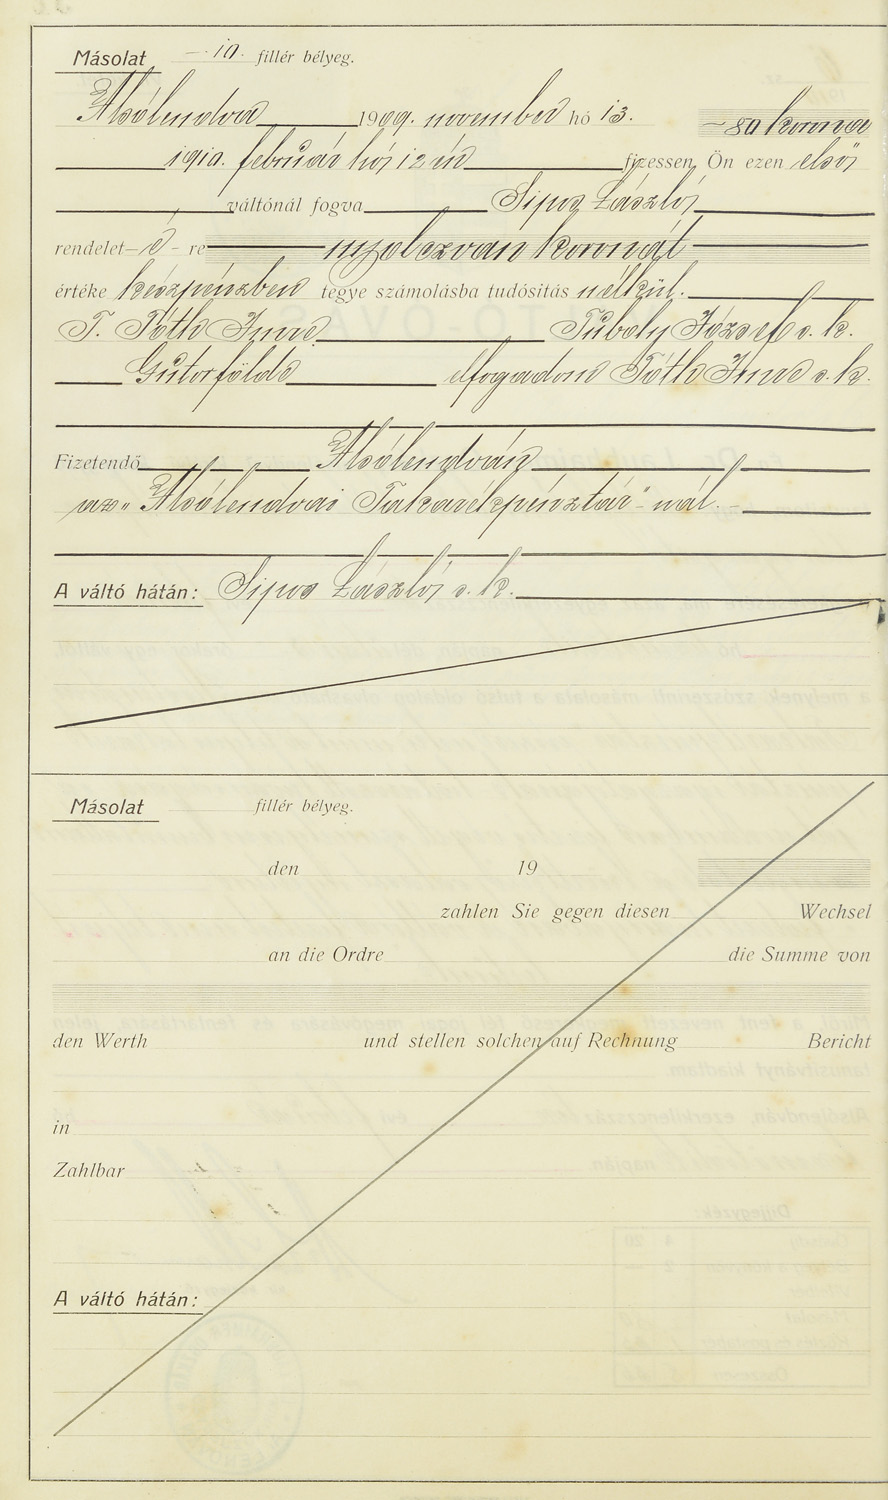 Másolat -10. fillér bélyeg.
Alsólendva 1909. november hó 13. - 80 korona
1910. február hó 12 én fizessen Ön ezen első
váltónál fogva Sipos László
rendelet-é-re nyolczvan koronát
értéke készpénzben tegye számolásba tudósitás nélkül.
T. Tóth Imre Tuboly József s. k.
Gutorfölde elfogadom Tóth Imre s. k.
Fizetendő Alsólendván
az „Alsólendvai Takarékpénztár"-nál.-
A váltó hátán: Sipos László s. k.
Másolat fillér bélyeg.
den 19
zahlen Sie gegen diesen Wechsel
an die Ordre die Summe von
den Werth und stellen solchen auf Rechnung Bericht
in
Zahlbar
A váltó hátán: